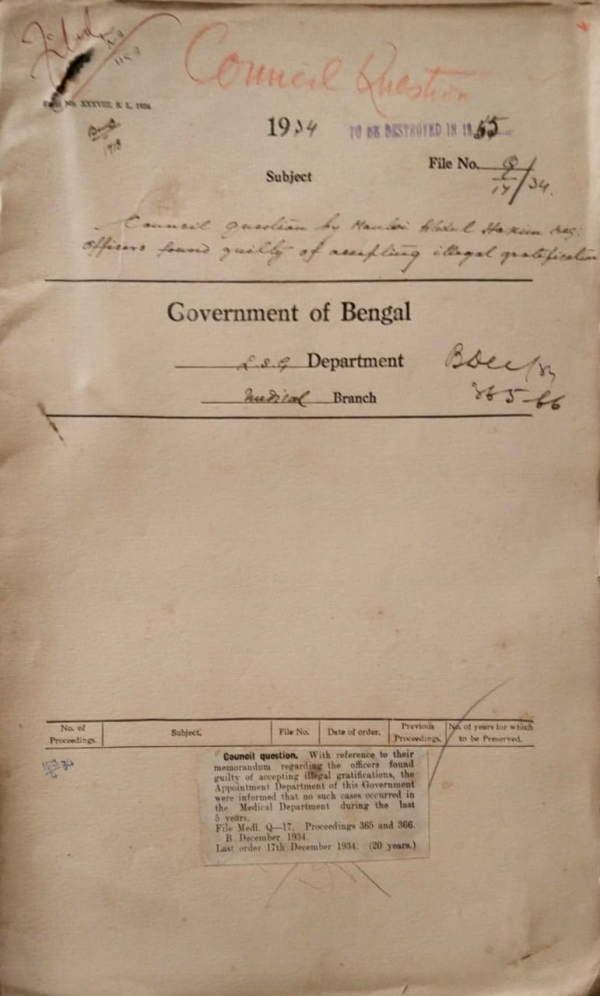 Filed
Council Question
Form No. XXXVIII, S. L, 1926
1934 TO BE DESTROYED IN 1955
File No. Q/17/34.
Subject
Council question by Maulvi Abdul Hakim reg:
Officers found guilty of accepting illegal gratification
Government of Bengal
L.S.G Department B Dec/34
Medical Branch 365-66
No. of Proceedings. Subject. File No. Date of order. Previous Proceedings. No. of years for which to be Preserved.
Council question. With reference to their
memorandum regarding the officers found
guilty of accepting illegal gratifications, the
Appointment Department of this Government
were informed that no such cases occurred in
the Medical Department during the last
5 years.
File Medl. Q—17. Proceedings 365 and 366.
B December 1934.
Last order 17th December 1934. (20 years.)